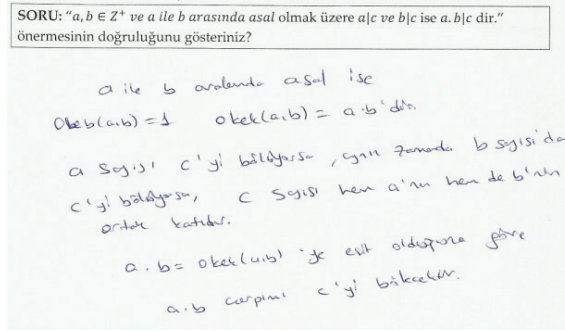 SORU: "a, b ∈ Z⁺ ve a ile b arasında asal olmak üzere a|c ve b|c ise a. b|c dir."
önermesinin doğruluğunu gösteriniz?
a ile b aralarında asal ise
Obeb(a,b) = 1 okek(a,b) = a.b'dir.
a sayısı c'yi bölüyorsa, aynı zamanda b sayısı da
c'yi bölüyorsa, c sayısı hem a'nın hem de b'nin
ortak katıdır.
a.b = okek(a,b) 'ye eşit olduğuna göre
a.b çarpımı c'yi bölecektir.